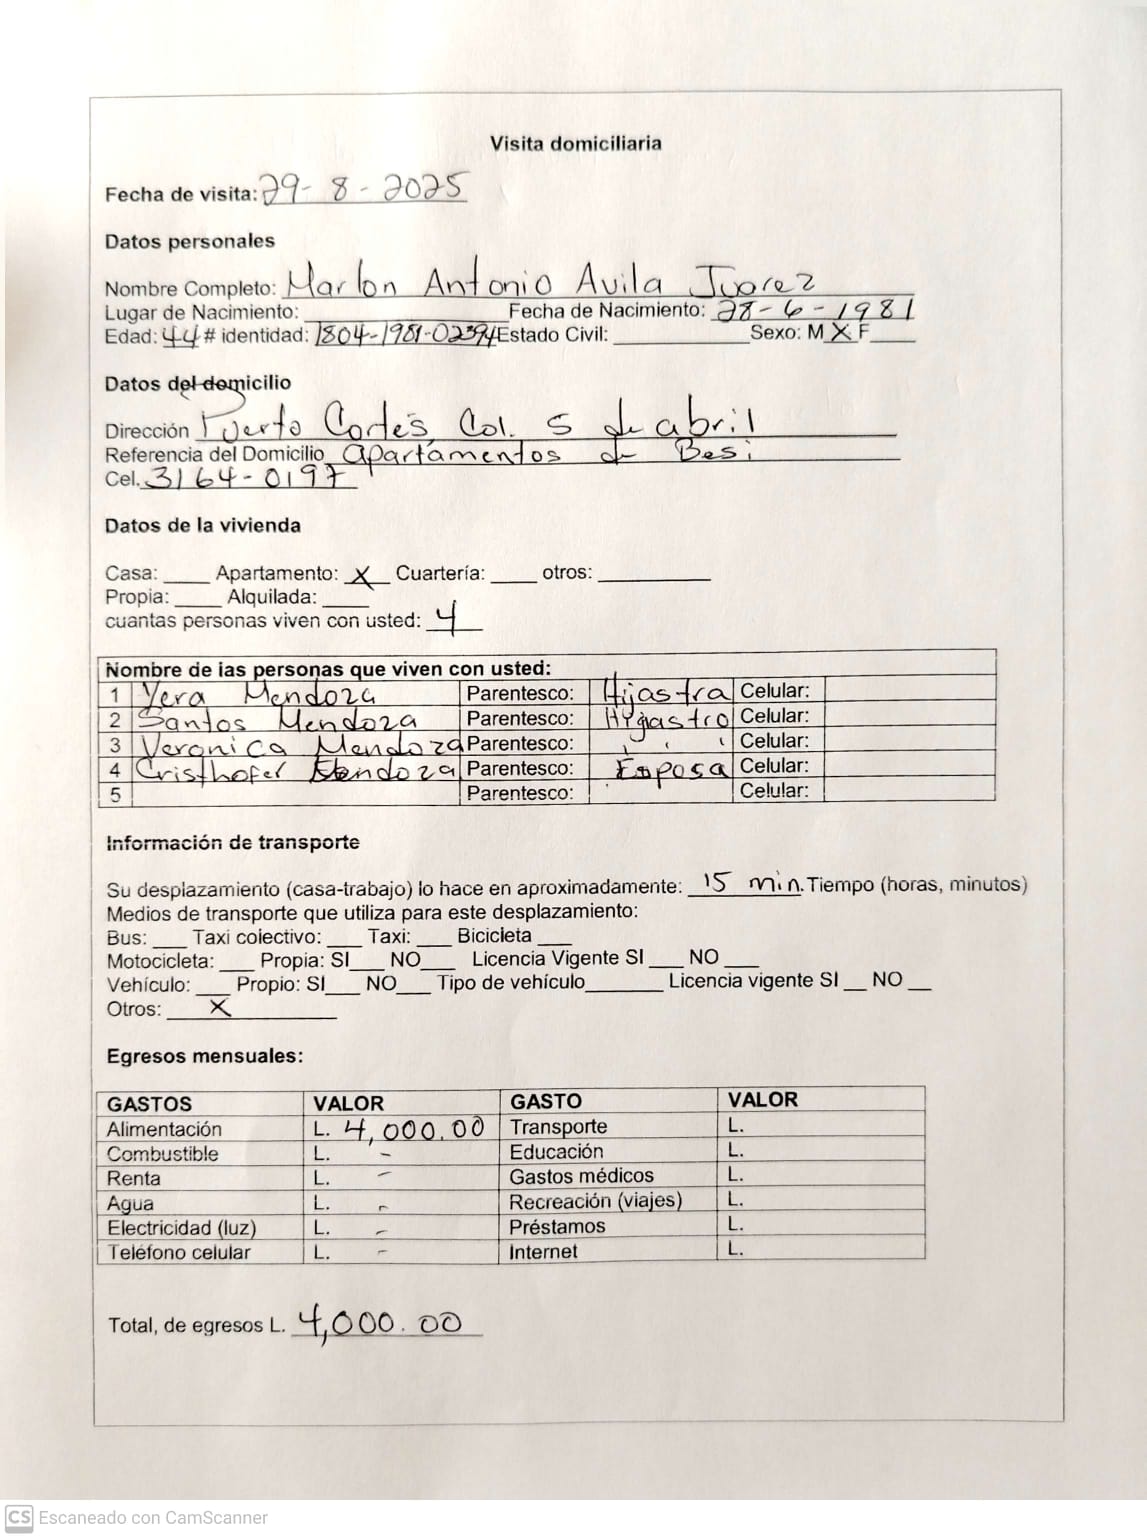 Visita domiciliaria
Fecha de visita: 29-8-2025
Datos personales
Nombre Completo: Marlon Antonio Avila Juarez
Lugar de Nacimiento: ____ Fecha de Nacimiento: 28-6-1981
Edad: 44 # identidad: 1804-1981-02394 Estado Civil: ____ Sexo: M X F____
Datos del domicilio
Dirección Puerto Cortés, Col. 5 de abril
Referencia del Domicilio apartamentos de Besi
Cel. 3164-0197
Datos de la vivienda
Casa: ____ Apartamento: X Cuartería: ____ otros: ____
Propia: ____ Alquilada: ____
cuantas personas viven con usted: 4
Nombre de las personas que viven con usted:
1 Yera Mendoza Parentesco: Hijastra Celular:
2 Santos Mendoza Parentesco: Hijastro Celular:
3 Veronica Mendoza Parentesco: ' ' ' Celular:
4 Cristhofer Mendoza Parentesco: Esposa Celular:
5 Parentesco: Celular:
Información de transporte
Su desplazamiento (casa-trabajo) lo hace en aproximadamente: 15 min. Tiempo (horas, minutos)
Medios de transporte que utiliza para este desplazamiento:
Bus: ___ Taxi colectivo: ___ Taxi: ___ Bicicleta ___
Motocicleta: ___ Propia: SI___ NO___ Licencia Vigente SI ___ NO ___
Vehículo: ___ Propio: SI___ NO___ Tipo de vehículo______ Licencia vigente SI __ NO __
Otros: X
Egresos mensuales:
GASTOS VALOR GASTO VALOR
Alimentación L. 4,000.00 Transporte L.
Combustible L. - Educación L.
Renta L. - Gastos médicos L.
Agua L. - Recreación (viajes) L.
Electricidad (luz) L. - Préstamos L.
Teléfono celular L. - Internet L.
Total, de egresos L. 4,000.00
CS Escaneado con CamScanner